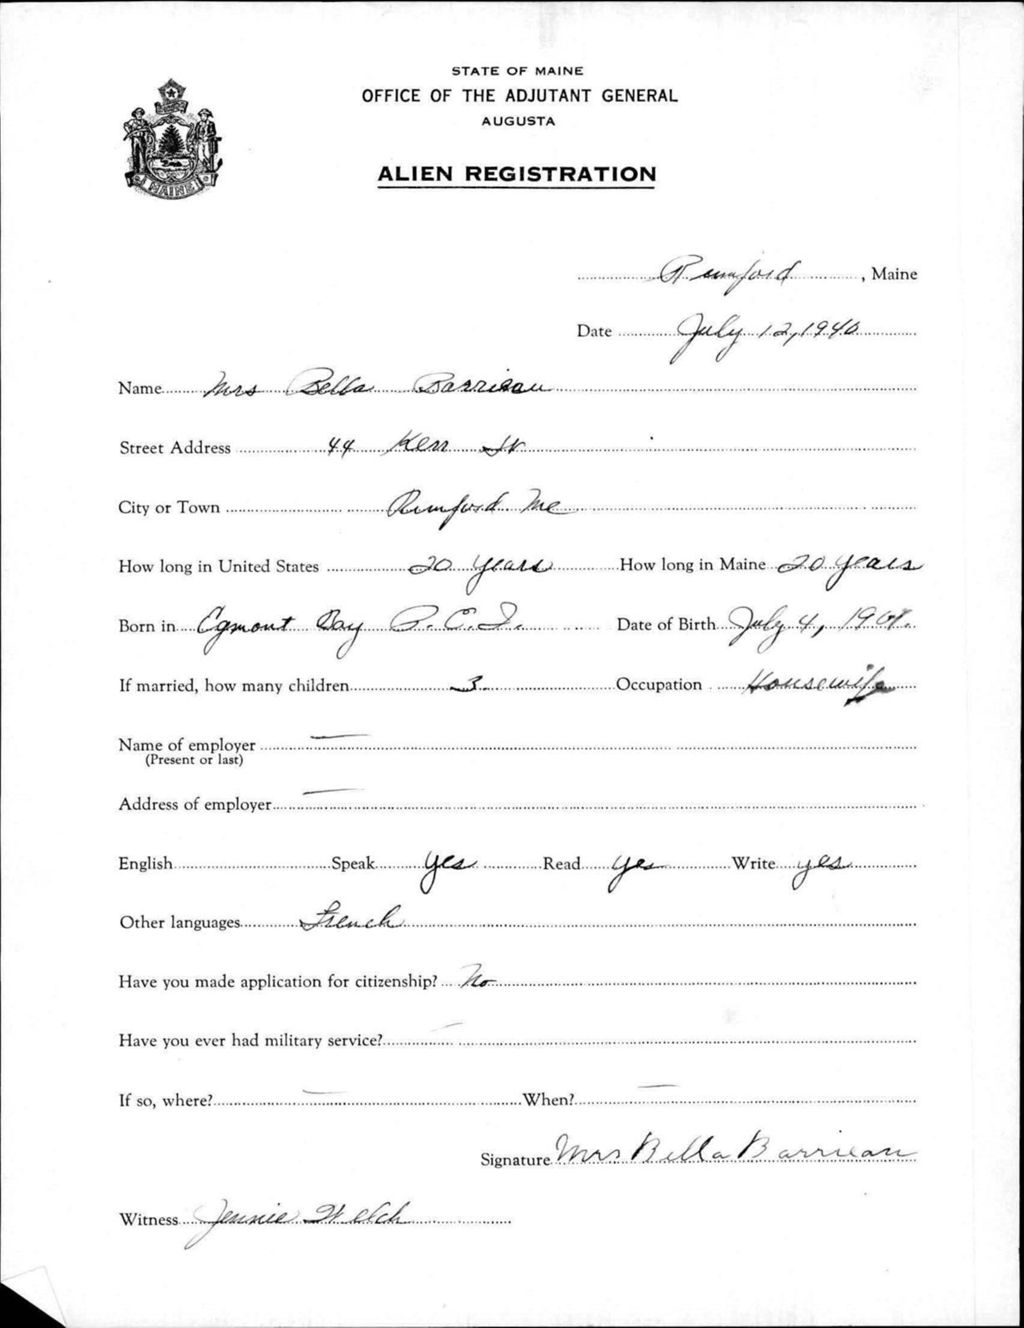 STATE OF MAINE
OFFICE OF THE ADJUTANT GENERAL
AUGUSTA
ALIEN REGISTRATION
MAINE
Rumford, Maine
Date July 12, 1940
Name Mrs Bella Barrieau
Street Address 44 Kerr St
City or Town Rumford Me
How long in United States 20 years How long in Maine 20 years
Born in Egmont Bay P. E. I. Date of Birth July 4,
If married, how many children 3 Occupation Housewife
Name of employer —
(Present or last)
Address of employer —
English Speak yes Read yes Write yes
Other languages French
Have you made application for citizenship? No
Have you ever had military service? —
If so, where? — When? —
Signature Mrs Bella Barrieau
Witness Jennie Welch